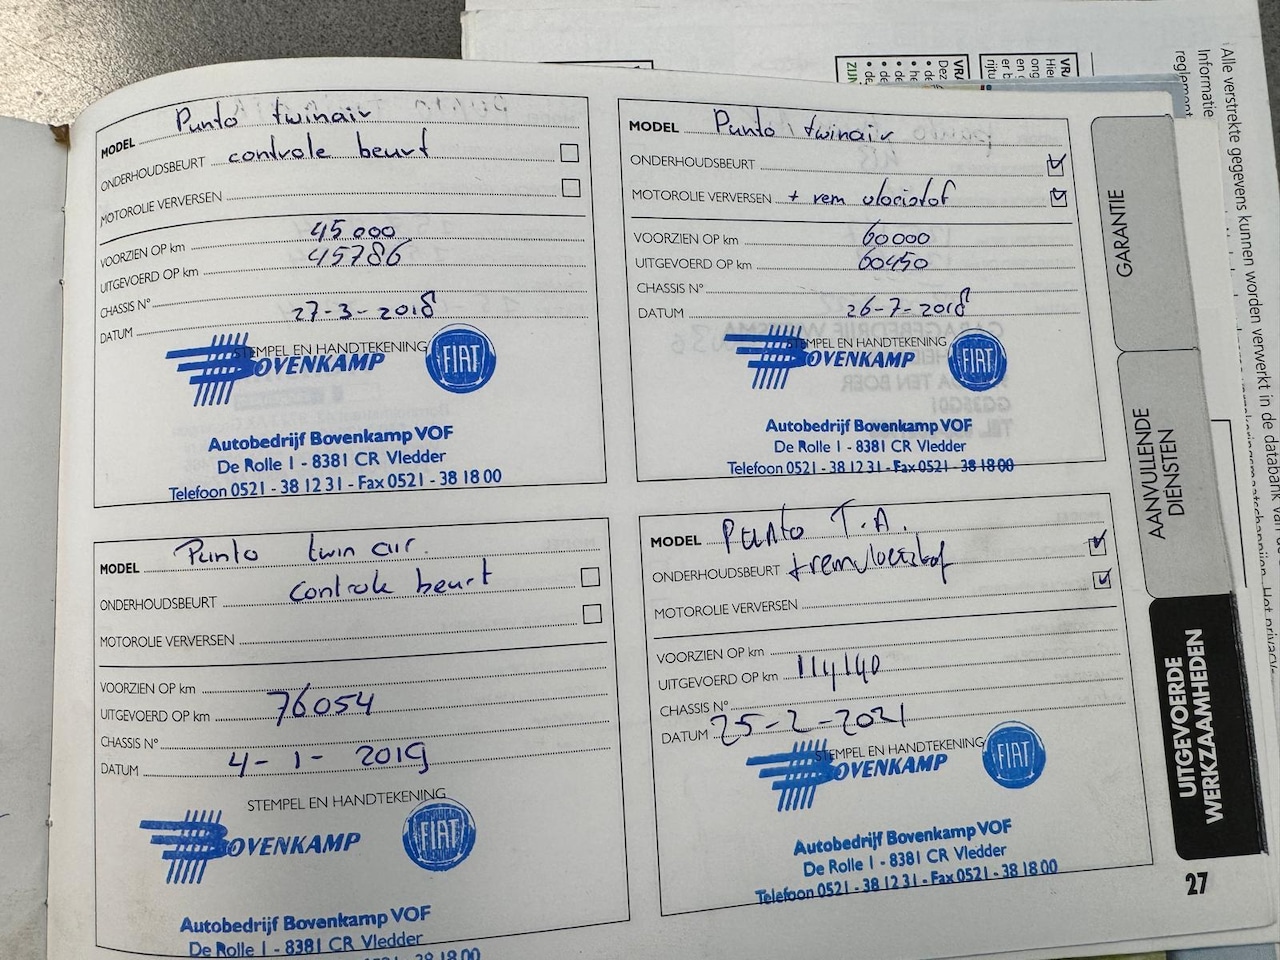 MODEL Punto twinair
ONDERHOUDSBEURT controle beurt
MOTOROLIE VERVERSEN
VOORZIEN OP km 45000
UITGEVOERD OP km 45786
CHASSIS N°
DATUM 27-3-2018
STEMPEL EN HANDTEKENING
BOVENKAMP FIAT
Autobedrijf Bovenkamp VOF
De Rolle 1 - 8381 CR Vledder
Telefoon 0521 - 38 12 31 - Fax 0521 - 38 18 00
MODEL Punto twinair
ONDERHOUDSBEURT
MOTOROLIE VERVERSEN + rem vloeistof
VOORZIEN OP km 60000
UITGEVOERD OP km 60450
CHASSIS N°
DATUM 26-7-2018
STEMPEL EN HANDTEKENING
BOVENKAMP FIAT
Autobedrijf Bovenkamp VOF
De Rolle 1 - 8381 CR Vledder
Telefoon 0521 - 38 12 31 - Fax 0521 - 38 18 00
MODEL Punto twin air.
ONDERHOUDSBEURT controle beurt
MOTOROLIE VERVERSEN
VOORZIEN OP km
UITGEVOERD OP km 76054
CHASSIS N°
DATUM 4-1-2019
STEMPEL EN HANDTEKENING
BOVENKAMP FIAT
Autobedrijf Bovenkamp VOF
De Rolle 1 - 8381 CR Vledder
MODEL Punto T.A.
ONDERHOUDSBEURT + remvloeistof
MOTOROLIE VERVERSEN
VOORZIEN OP km
UITGEVOERD OP km 114140
CHASSIS N°
DATUM 25-2-2021
STEMPEL EN HANDTEKENING
BOVENKAMP FIAT
Autobedrijf Bovenkamp VOF
De Rolle 1 - 8381 CR Vledder
Telefoon 0521 - 38 12 31 - Fax 0521 - 38 18 00
GARANTIE
AANVULLENDE
DIENSTEN
UITGEVOERDE
WERKZAAMHEDEN
27
Alle verstrekte gegevens kunnen worden verwerkt in de databank van
Informatie
reglement